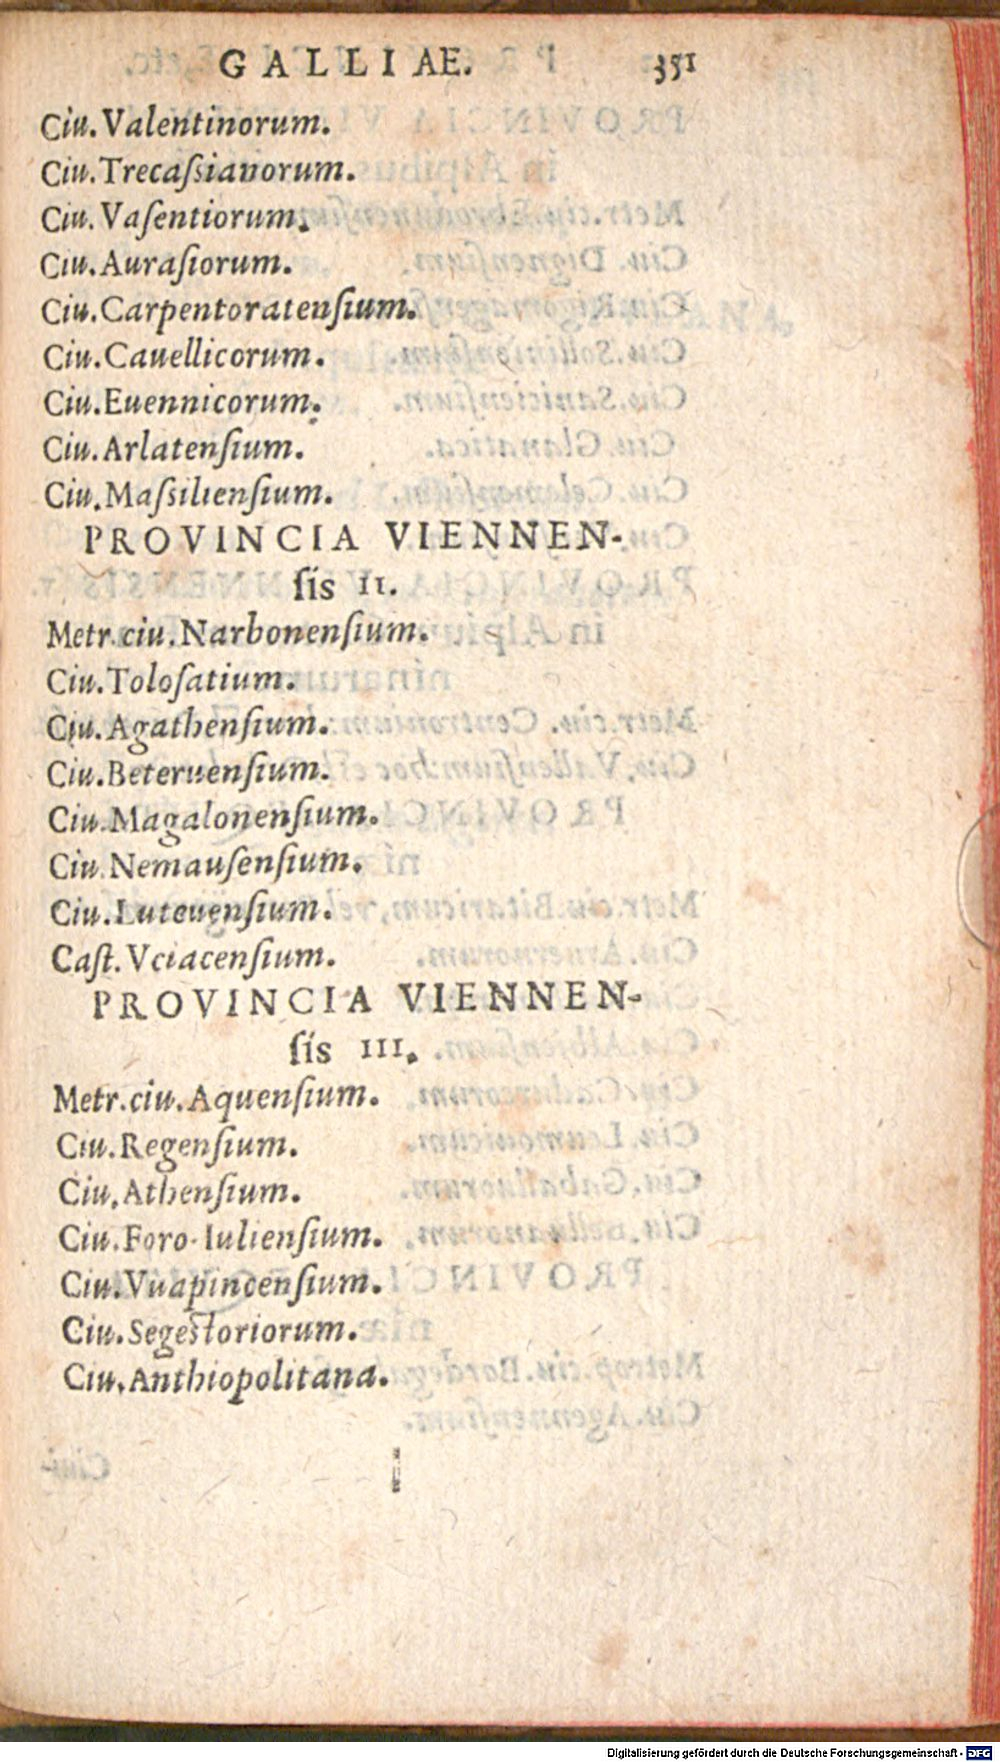 GALLIAE. 351
Ciu. Valentinorum.
Ciu. Trecaſsianorum.
Ciu. Vaſentiorum.
Ciu. Auraſiorum.
Ciu. Carpentoratenſium.
Ciu. Cauellicorum.
Ciu. Euennicorum.
Ciu. Arlatenſium.
Ciu. Maſsilienſium.
PROVINCIA VIENNEN-
ſis II.
Metr. ciu. Narbonenſium.
Ciu. Toloſatium.
Ciu. Agathenſium.
Ciu. Beteruenſium.
Ciu. Magalonenſium.
Ciu. Nemauſenſium.
Ciu. Luteuenſium.
Caſt. Vciacenſium.
PROVINCIA VIENNEN-
ſis III.
Metr. ciu. Aquenſium.
Ciu. Regenſium.
Ciu. Athenſium.
Ciu. Foro-Iulienſium.
Ciu. Vuapincenſium.
Ciu. Segeſtoriorum.
Ciu. Anthiopolitana.
Digitalisierung gefördert durch die Deutsche Forschungsgemeinschaft - DFG